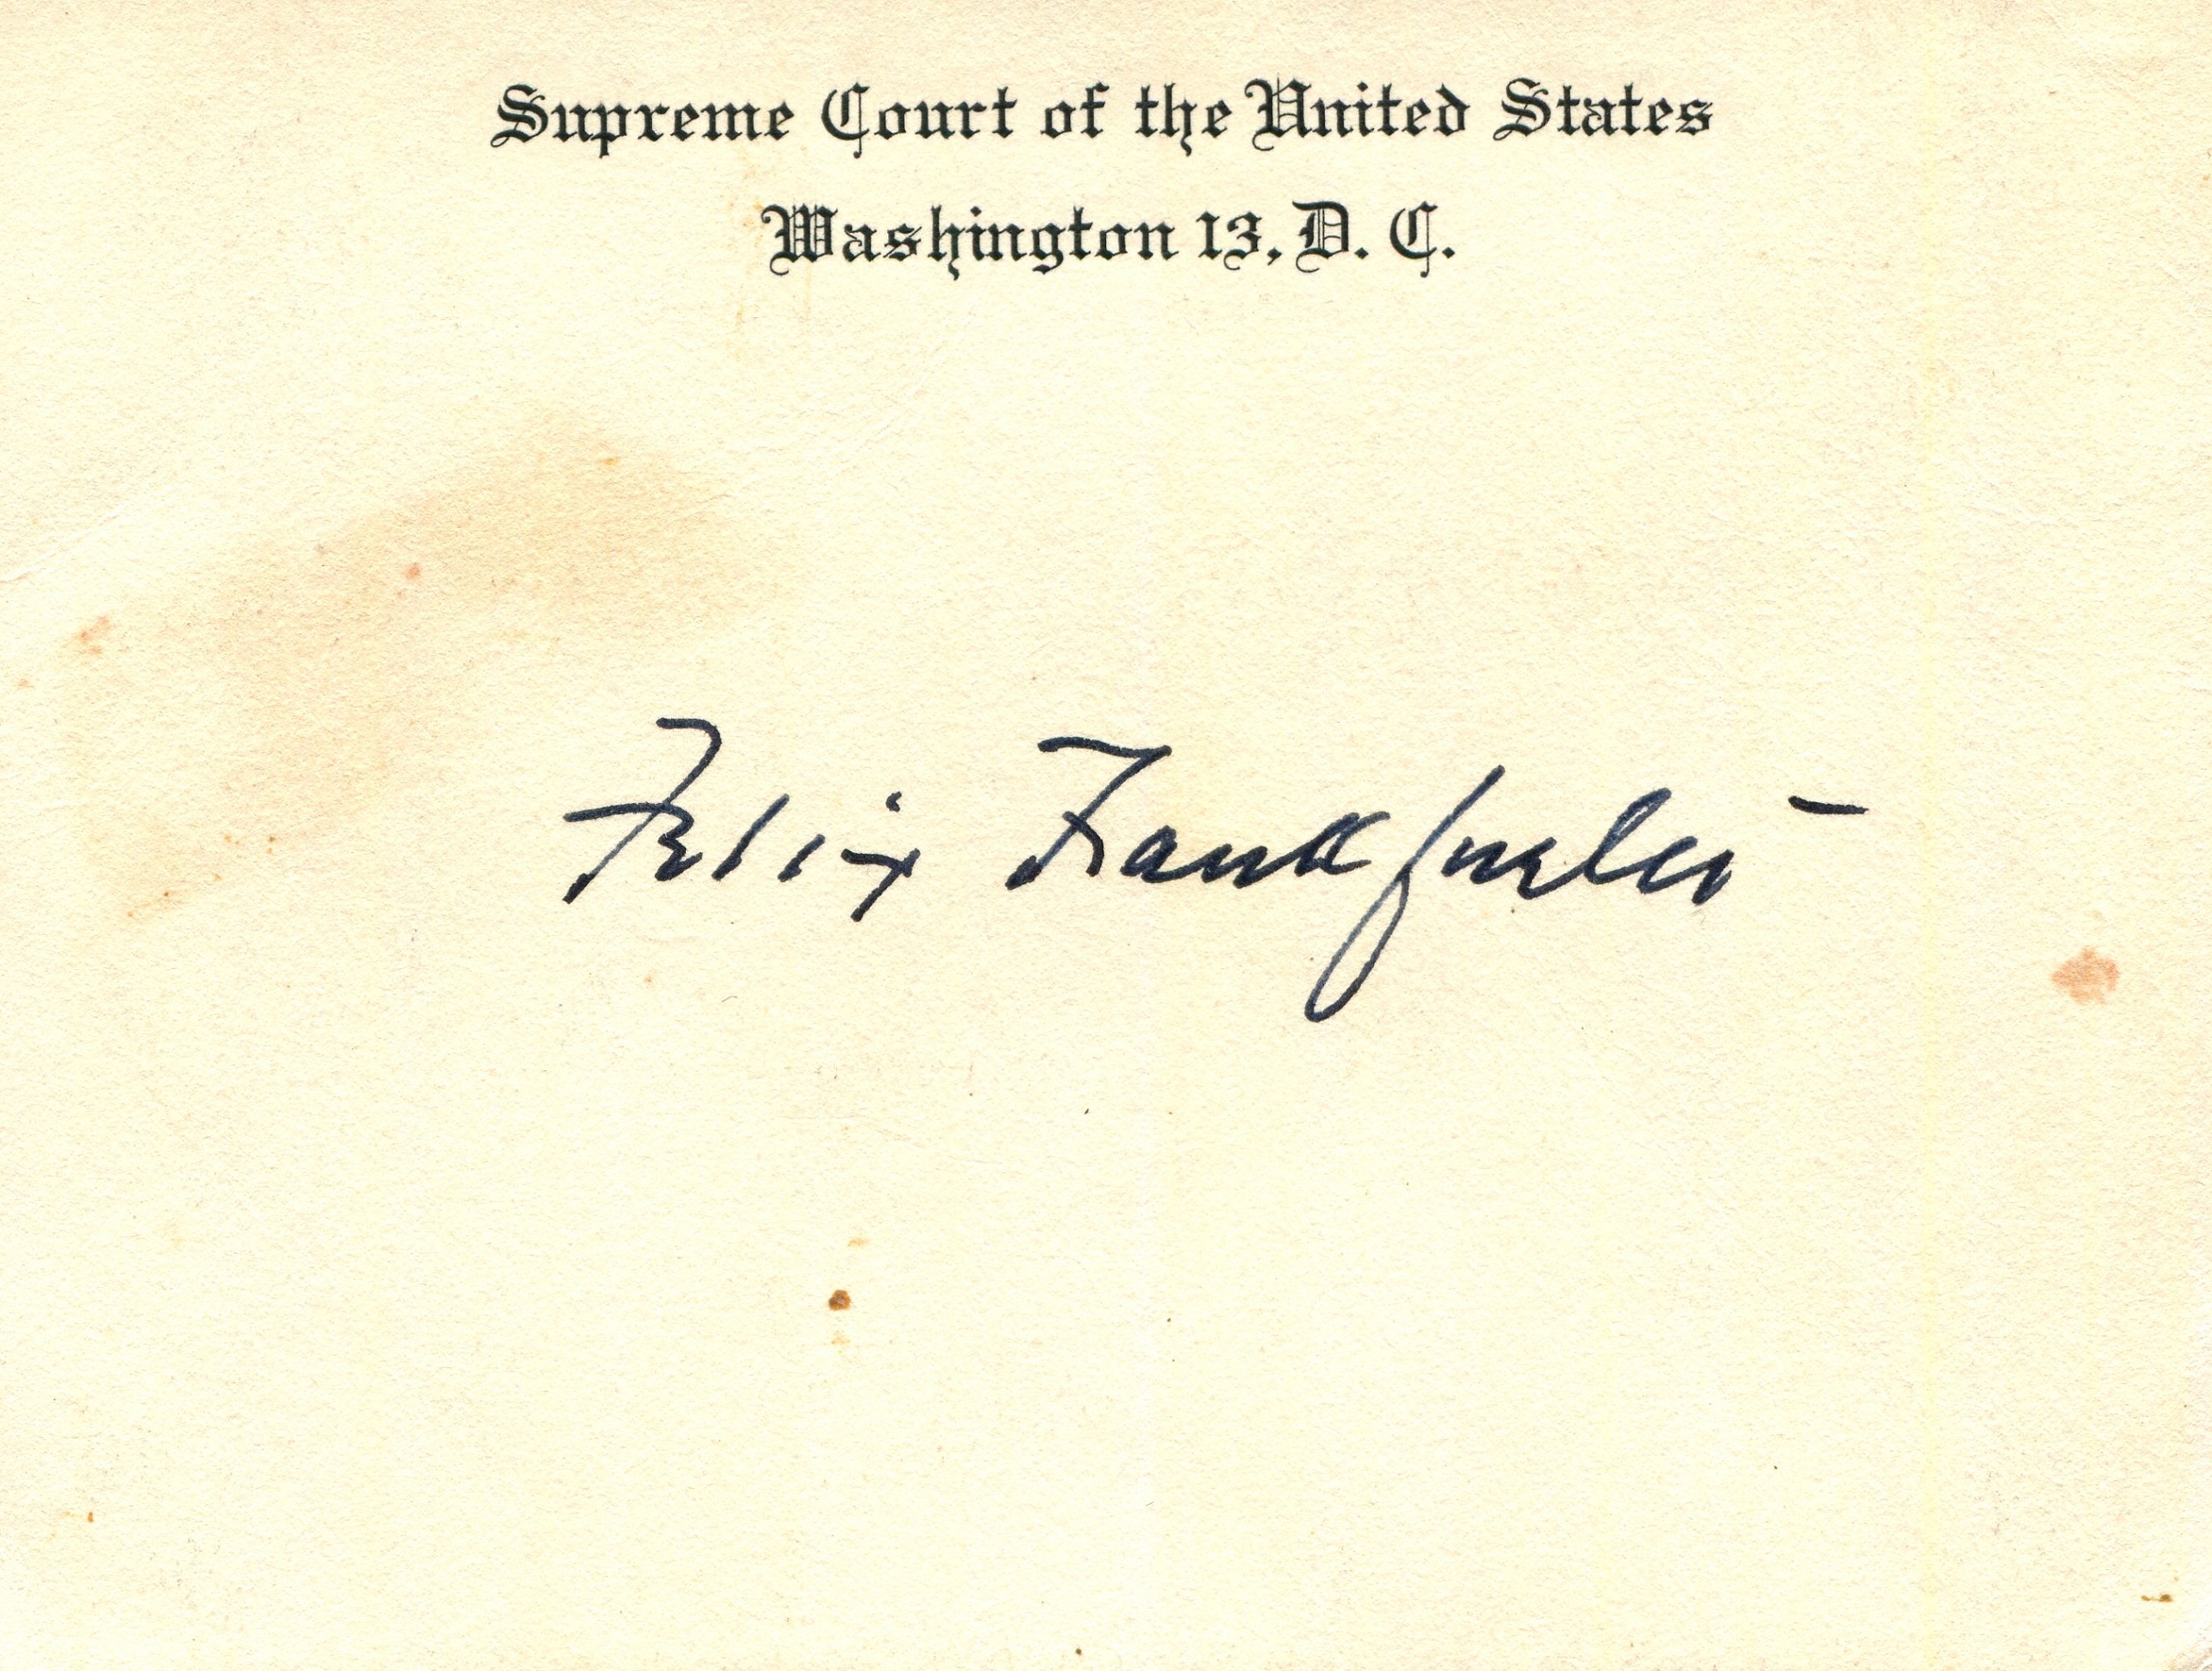 Supreme Court of the United States
Washington 13, D. C.
Felix Frankfurter